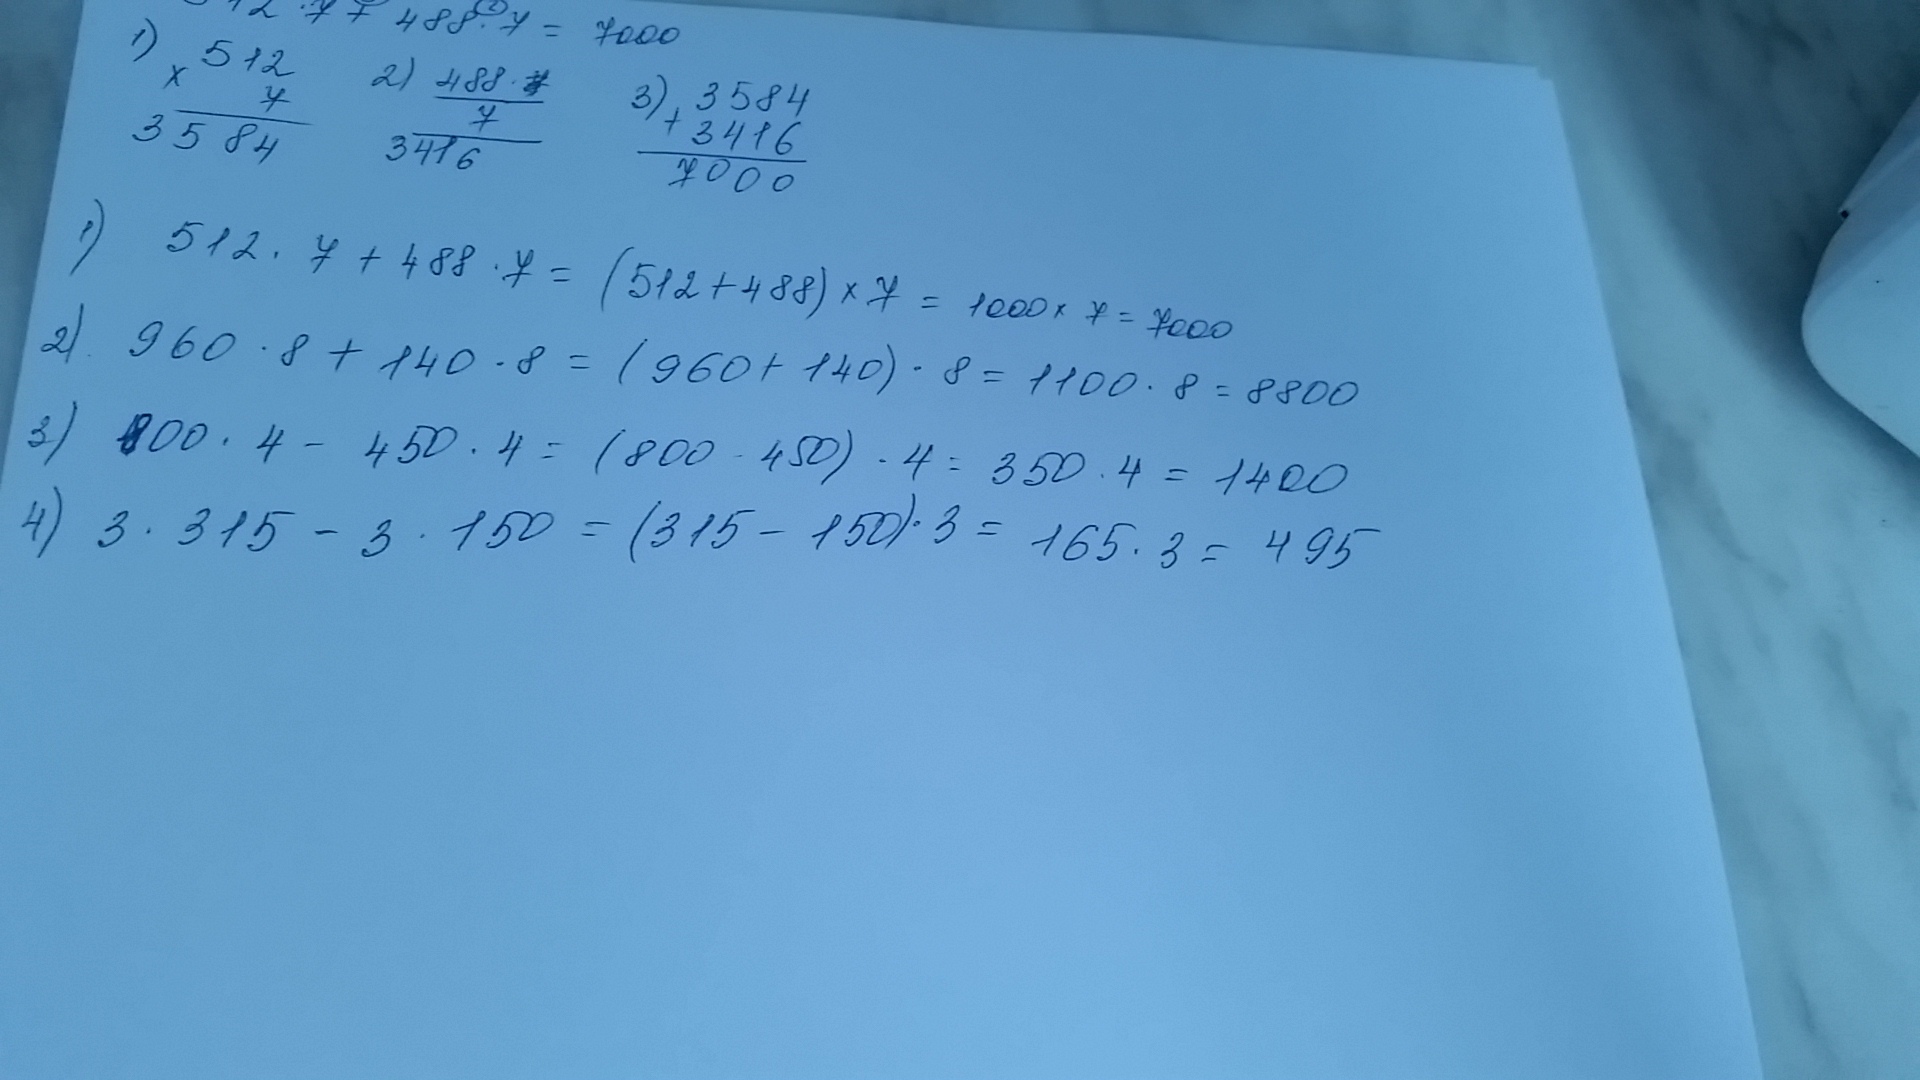 512 · 7 + 488 · 7 = 7000
1) × 512 2) 488 · 3) + 3584
7 7 3416
3584 3416 7000
1) 512 · 7 + 488 · 7 = (512 + 488) × 7 = 1000 × 7 = 7000
2) 960 · 8 + 140 · 8 = (960 + 140) · 8 = 1100 · 8 = 8800
3) 800 · 4 - 450 · 4 = (800 - 450) · 4 = 350 · 4 = 1400
4) 3 · 315 - 3 · 150 = (315 - 150) · 3 = 165 · 3 = 495